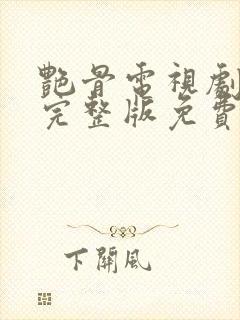 艷骨電視劇
完整版免費
下關風